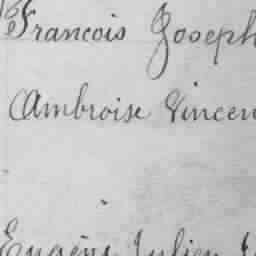 Francois Joseph
Ambroise Vincen
Eugène Julien